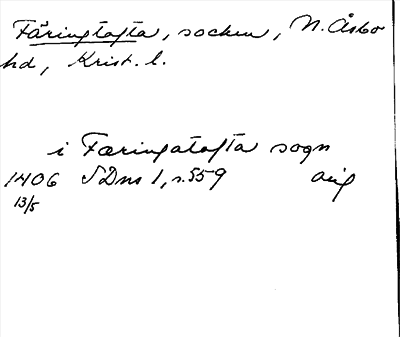 Färingtofta, socken, N. Åsbo
hd, Krist. l.
i Færingatofta sogn
1406 SDns 1, s. 559 orig
13/5